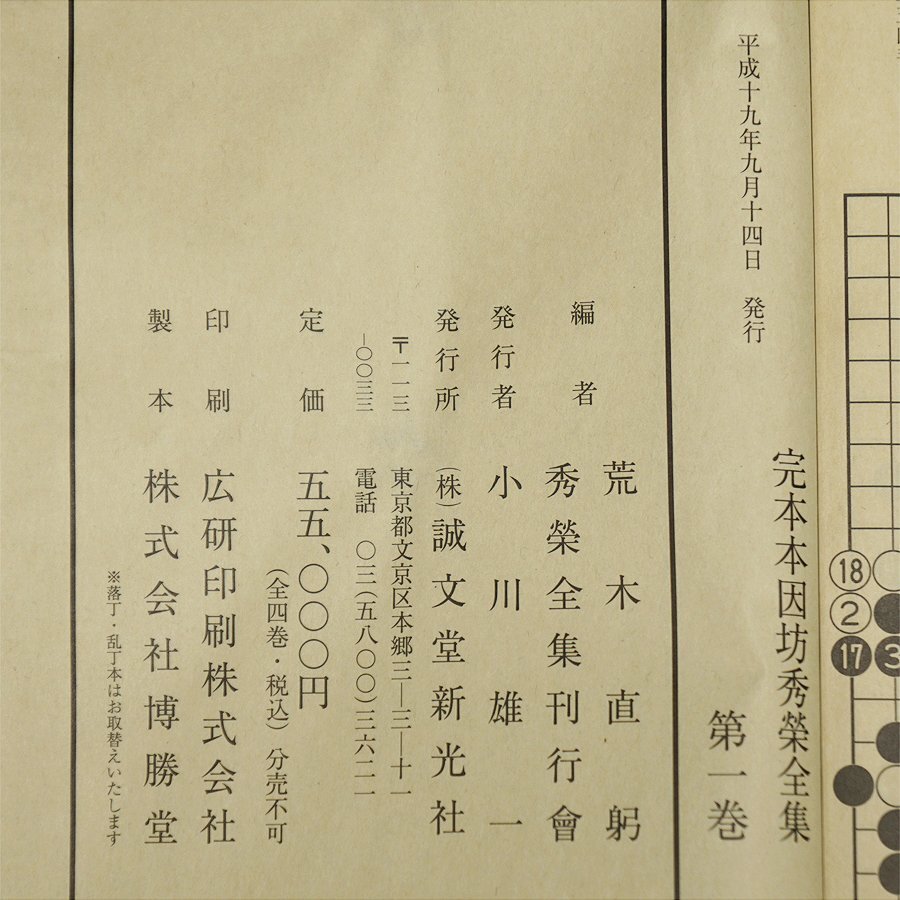 完本本因坊秀榮全集　第一巻
平成十九年九月十四日　発行
編者　荒木直躬
秀榮全集刊行會
発行者　小川雄一
発行所　（株）誠文堂新光社
〒一一三
―〇〇三三
東京都文京区本郷三―三―十一
電話　〇三（五八〇〇）三六二一
定価　五五、〇〇〇円
（全四巻・税込）分売不可
印刷　広研印刷株式会社
製本　株式会社博勝堂
※落丁・乱丁本はお取替えいたします
18
2
17
3